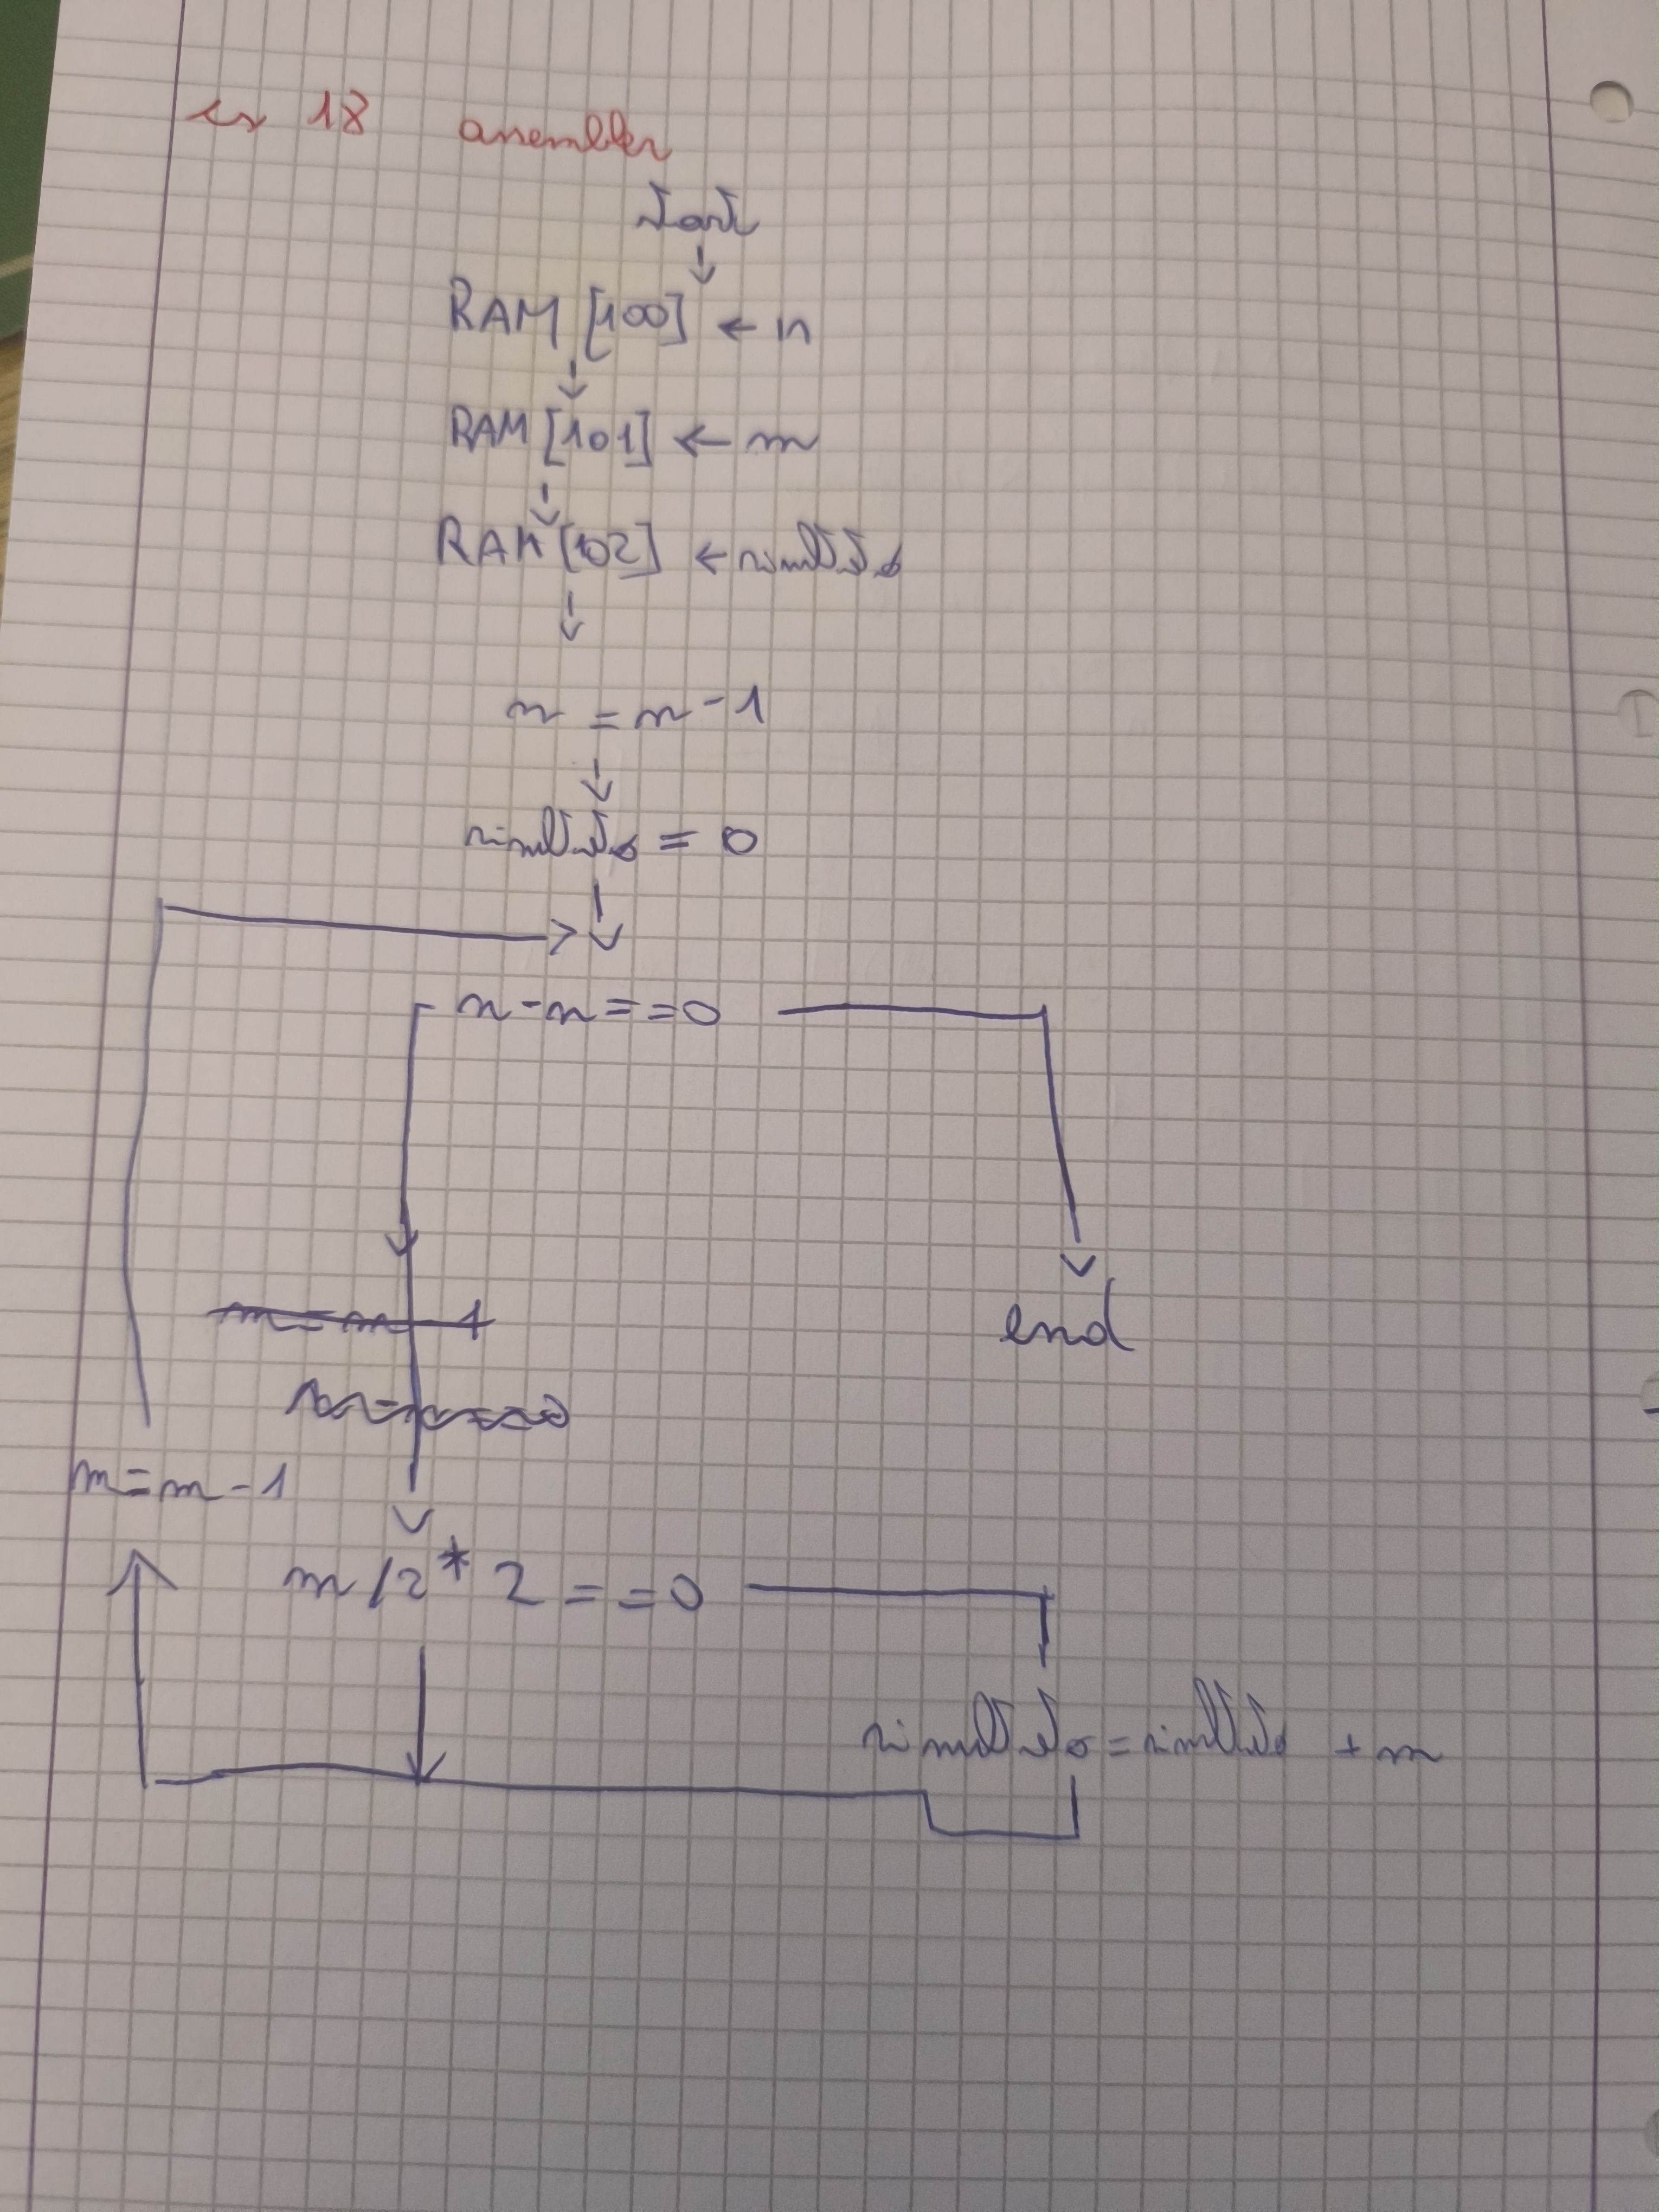 es 18 assembler
start
RAM [100] ← n
RAM [101] ← m
RAM [102] ← risultato
n = n - 1
risultato = 0
n - n == 0
end
m = m - 1
m /2 * 2 == 0
risultato = risultato + m